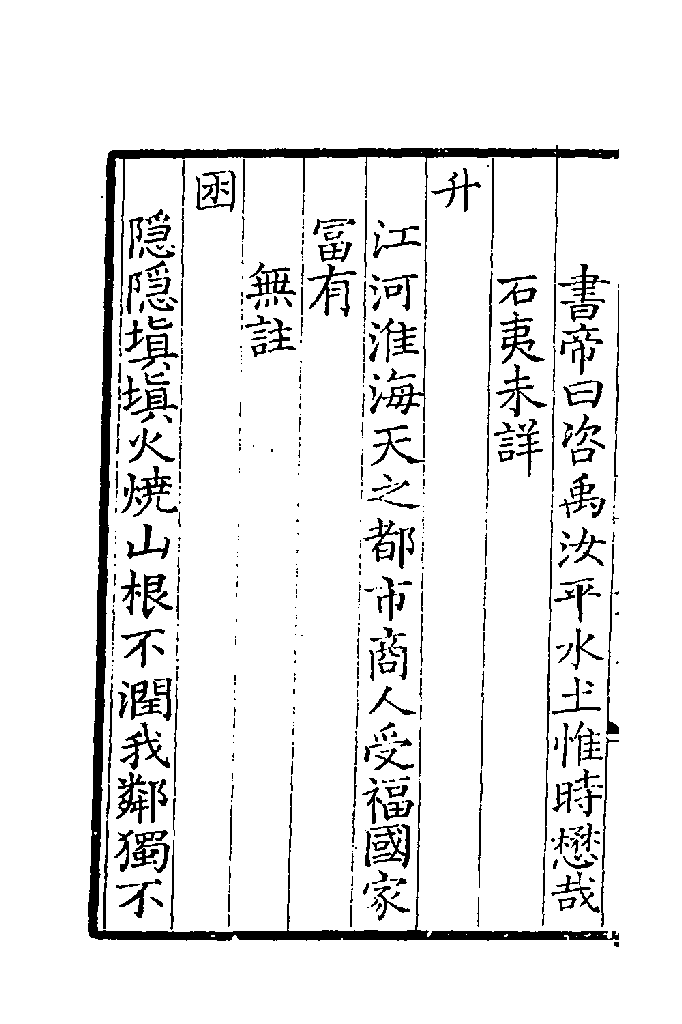 書帝曰咨禹汝平水土惟時懋哉
石夷未詳
升
江河淮海天之都市商人受福國家
冨有
無註
困
隱隱塡塡火燒山根不潤我鄰獨不